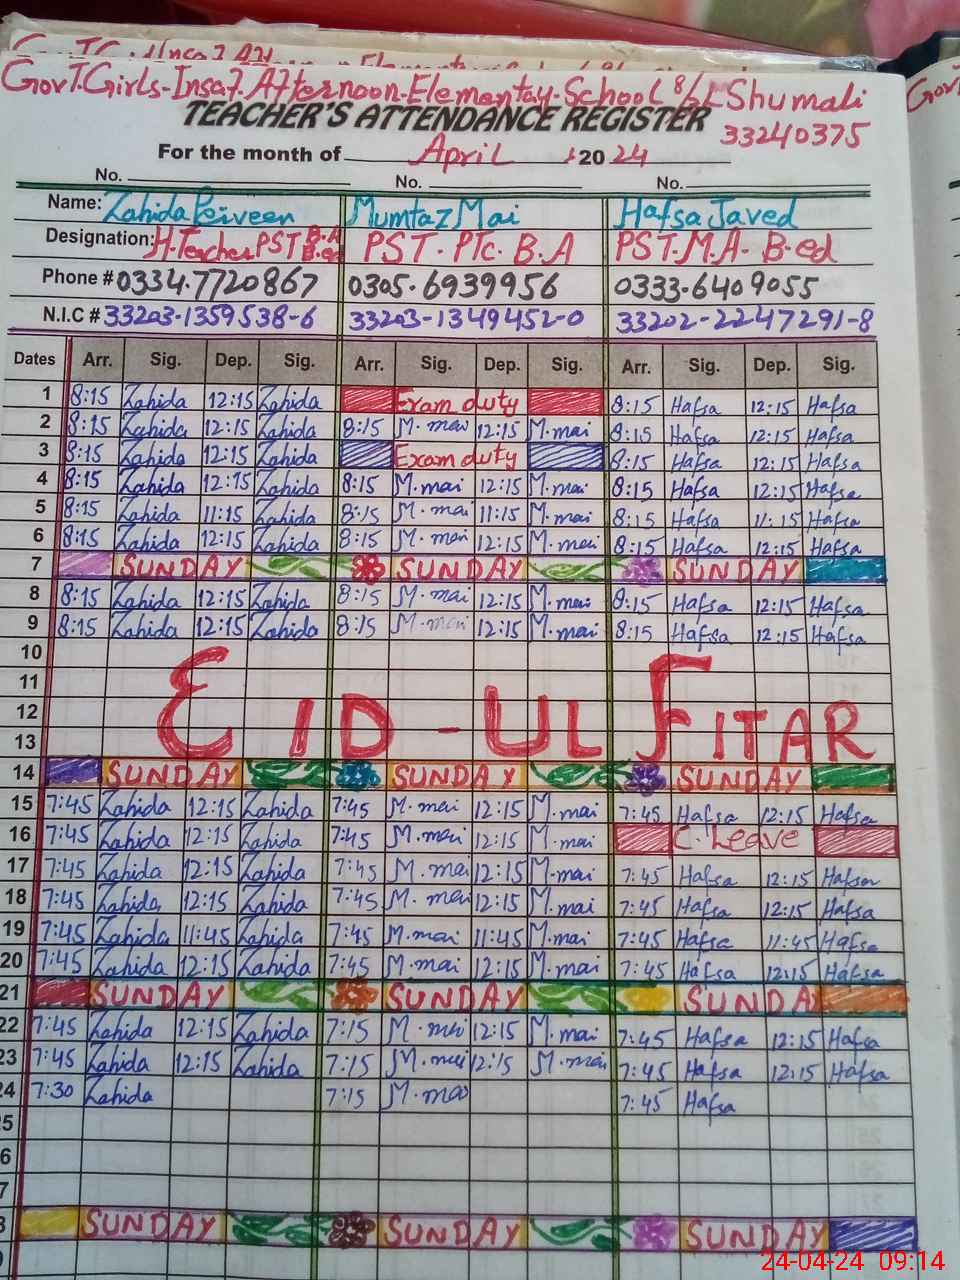 GovT.Girls-Insaf.Afternoon-Elementay-School 8/L Shumali
TEACHER'S ATTENDANCE REGISTER
33240375
For the month of April 2024
No. No. No.
Name: Zahida Perveen Mumtaz Mai Hafsa Javed
Designation: H.Teacher PST B.A B.ed PST. PTc. B.A PST.M.A- B.ed
Phone # 0334.7720867 0305.6939956 0333-6409055
N.I.C # 33203-1359538-6 33203-1349452-0 33202-2247291-8
Dates Arr. Sig. Dep. Sig. Arr. Sig. Dep. Sig. Arr. Sig. Dep. Sig.
1 8:15 Zahida 12:15 Zahida Exam duty 8:15 Hafsa 12:15 Hafsa
2 8:15 Zahida 12:15 Zahida 8:15 M.mai 12:15 M.mai 8:15 Hafsa 12:15 Hafsa
3 8:15 Zahida 12:15 Zahida Exam duty 8:15 Hafsa 12:15 Hafsa
4 8:15 Zahida 12:15 Zahida 8:15 M.mai 12:15 M.mai 8:15 Hafsa 12:15 Hafsa
5 8:15 Zahida 11:15 Zahida 8:15 M.mai 11:15 M.mai 8:15 Hafsa 11:15 Hafsa
6 8:15 Zahida 12:15 Zahida 8:15 M.mai 12:15 M.mai 8:15 Hafsa 12:15 Hafsa
7 SUNDAY SUNDAY SUNDAY
8 8:15 Zahida 12:15 Zahida 8:15 M.mai 12:15 M.mai 8:15 Hafsa 12:15 Hafsa
9 8:15 Zahida 12:15 Zahida 8:15 M.mai 12:15 M.mai 8:15 Hafsa 12:15 Hafsa
10
11
12 EID-UL FITAR
13
14 SUNDAY SUNDAY SUNDAY
15 7:45 Zahida 12:15 Zahida 7:45 M.mai 12:15 M.mai 7:45 Hafsa 12:15 Hafsa
16 7:45 Zahida 12:15 Zahida 7:45 M.mai 12:15 M.mai C.Leave
17 7:45 Zahida 12:15 Zahida 7:45 M.mai 12:15 M.mai 7:45 Hafsa 12:15 Hafsa
18 7:45 Zahida 12:15 Zahida 7:45 M.mai 12:15 M.mai 7:45 Hafsa 12:15 Hafsa
19 7:45 Zahida 11:45 Zahida 7:45 M.mai 11:45 M.mai 7:45 Hafsa 11:45 Hafsa
20 7:45 Zahida 12:15 Zahida 7:45 M.mai 12:15 M.mai 7:45 Hafsa 12:15 Hafsa
21 SUNDAY SUNDAY SUNDAY
22 7:45 Zahida 12:15 Zahida 7:15 M.mai 12:15 M.mai 7:45 Hafsa 12:15 Hafsa
23 7:45 Zahida 12:15 Zahida 7:15 M.mai 12:15 M.mai 7:45 Hafsa 12:15 Hafsa
24 7:30 Zahida 7:15 M.mai 7:45 Hafsa
25
6
7
8 SUNDAY SUNDAY SUNDAY
24-04-24 09:14